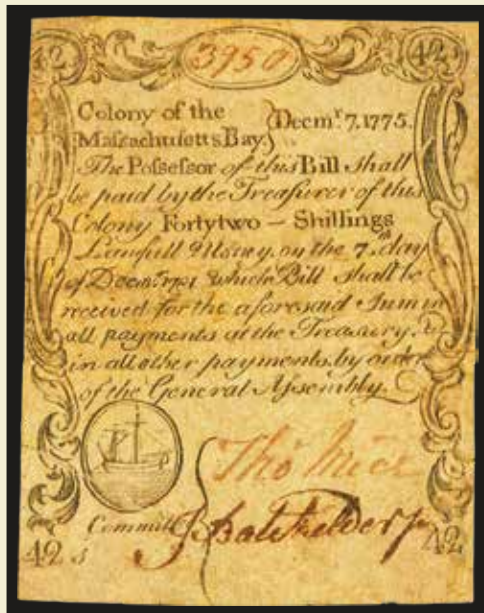 42 3950 42
Colony of the
Massachusetts Bay. } Decmr. 7. 1775.
The Possessor of this Bill shall
be paid by the Treasurer of this
Colony Fortytwo – Shillings
Lawfull Money, on the 7th day
of which Bill shall be
received for the aforesaid Sum in
all payments at the Treasury, &
in all other payments, by order
of the General Assembly.
Tho
Committe J Batchelder
42 s 42